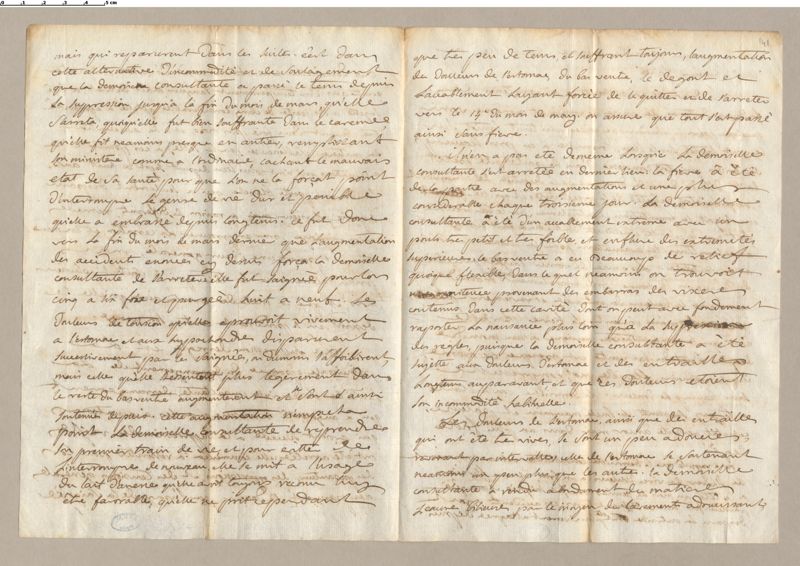 mais qui reparurent dans les suites c'est dans
cette alternative d'incommodité et de soulagement
que la demoiselle consultante a passé le tems depuis
la suppression jusqu'à la fin du mois de mars, quelle
s'arreta, quoiqu'elle fut bien souffrante dans le careme
qu'elle fit neamoins presque en entier, remplissant
son ministere comme a l'ordinaire, cachant le mauvais
etat de sa santé pour que l'on ne la forçat point
d'interrompre le genre de vie dur et penible
qu'elle a embrassé depuis longtems. ce fut donc
vers la fin du mois de mars dernier que l'augmentation
des accidents enoncés cy dessus força la demoiselle
consultante de s'arreter elle fut saignée pour lors
cinq a six fois et purgée huit a neuf. Les
douleurs de tension qu'elle eprouvoit vivement
a l'estomac et aux hypochondres disparurent
successivement par les saignées, ou du moins s'affoiblirent,
mais celle qu'elle ressentoit plus legerement dans
le reste du bas ventre augmenterent et se sont ainsi
soutenues depuis. cette augmentation n'empecha
point la demoiselle consultante de reprendre
son premier train de vie, et pour eviter de
l'interrompre de nouveau elle se mit a l'usage
du lait d'anesse qu'elle avoit toujours reconnu luy
etre favorable, qu'elle ne prit cependant
141
que tres peu de tems, et souffrant toujours, l'augmentation
de douleurs de l'estomac, du bas ventre, le degout et
l'accablement l'ayant forcée de le quitter et de s'arreter
vers le 14e du mois de may. on assure que tout s'est passé
ainsi sans fievre.
il n'en a pas eté de meme lorsque la demoiselle
consultante s'est arretée en dernier lieu la fievre a eté
de la partie avec des augmentations et une plus
considerable chaque troisieme jour. La demoiselle
consultante a eté d'un accablement extreme avec un
pouls tres petit et tres foible, et enflure des extremités
superieures, le bas ventre a eu beaucoup de relief
quoique flexible, dans lequel neamoins on trouvoit
provenant des embarras des visceres
contenus dans cette cavité dont on peut avec fondement
raporter la naissance plus loin qu'a la suppression
des regles, puisque la demoiselle consultante a eté
sujette aux douleurs d'estomac et des entrailles
longtems auparavant et que ces douleurs etoient
son incommodité habituelle.
Les douleurs de l'estomac, ainsi que des entrailles
qui ont eté tres vives, se sont un peu adoucies
par intervalles, celle de l'estomac se soutenant
neamoins un peu plus que les autres. la demoiselle
consultante a rendu abondament des matieres
bilieuses par le moyen de lavements adoucissants